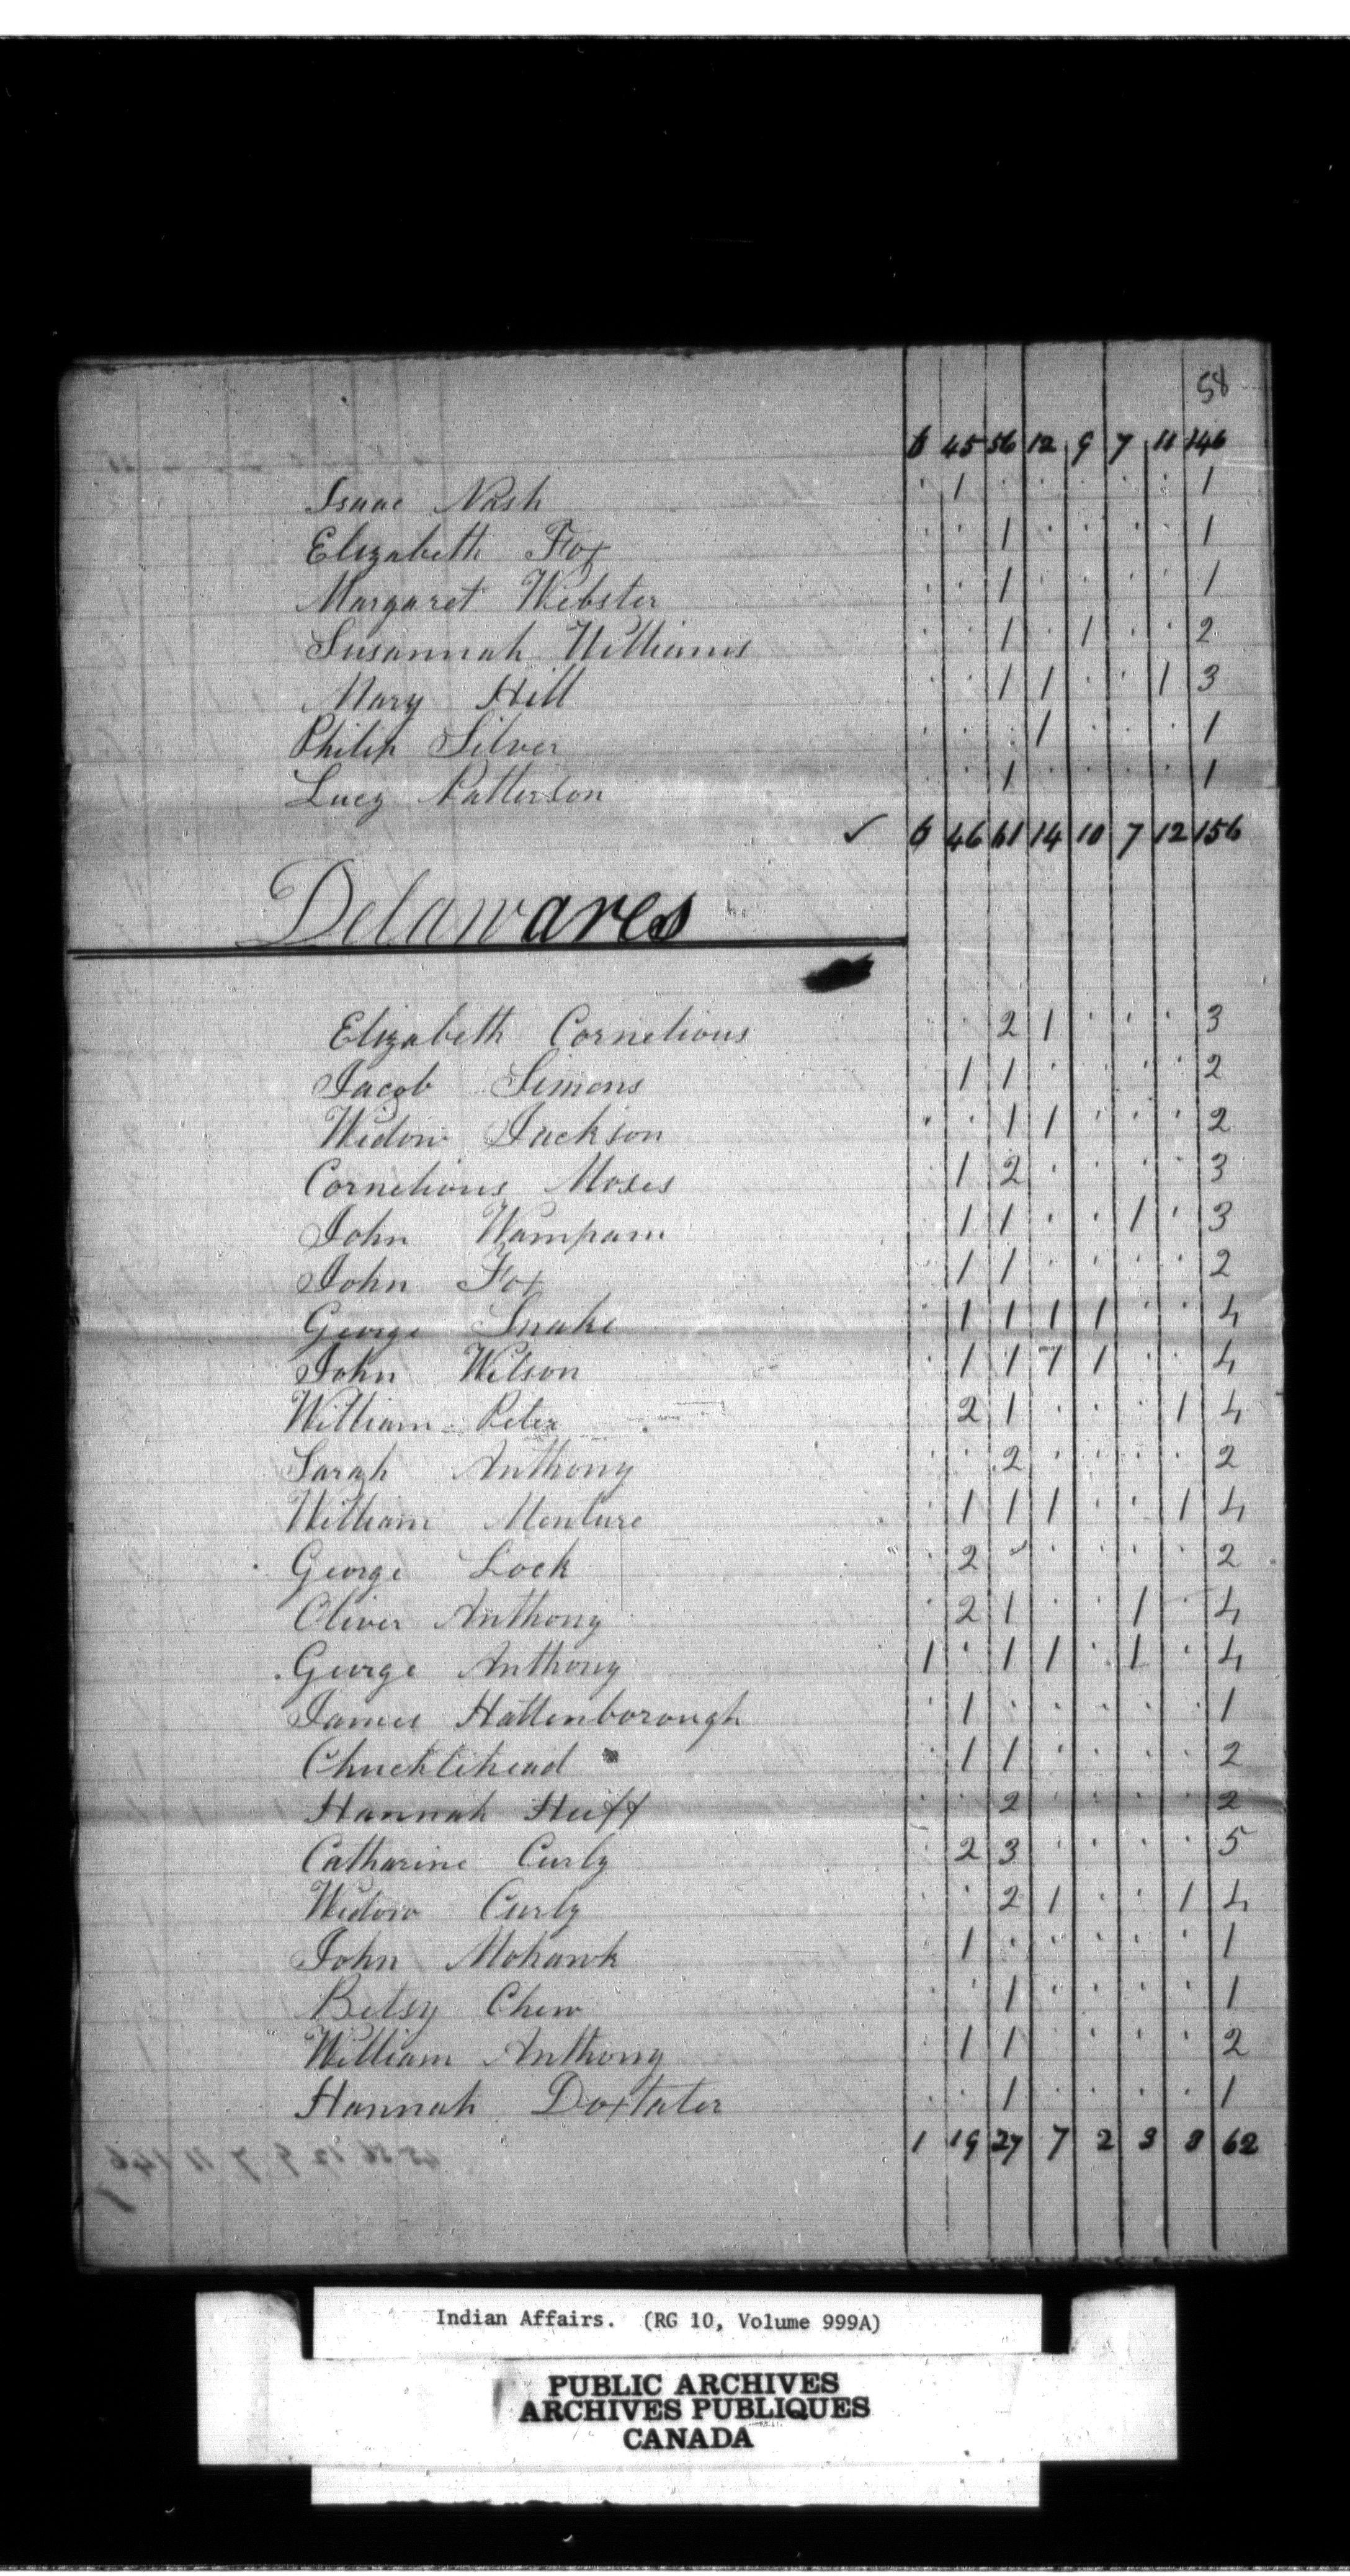 58
6 45 56 12 9 7 11 146
Isaac Nash . 1 . . . . . 1
Elizabeth Fox . . 1 . . . . 1
Margaret Webster . . 1 . . . . 1
Susannah Williams . . 1 . 1 . . 2
Mary Hill . . 1 1 . . 1 3
Philip Silver . . . 1 . . . 1
Lucy Patterson . . 1 . . . . 1
✓ 6 46 61 14 10 7 12 156
Delawares
Elizabeth Cornelious . . 2 1 . . . 3
Jacob Simons . 1 1 . . . . 2
Widow Jackson . . 1 1 . . . 2
Cornelious Moses . 1 2 . . . . 3
John Wampam . 1 1 . . 1 . 3
John Fox . 1 1 . . . . 2
George Snake . 1 1 1 1 . . 4
John Wilson . 1 1 1 1 . . 4
William Peter . 2 1 . . . 1 4
Sarah Anthony . . 2 . . . . 2
William Monture . 1 1 1 . . 1 4
George Lock . 2 . . . . . 2
Oliver Anthony . 2 1 . . 1 . 4
George Anthony 1 . 1 1 . 1 . 4
James Hattenborough . 1 . . . . . 1
Chucklehead . 1 1 . . . . 2
Hannah Huff . . 2 . . . . 2
Catharine Curly . 2 3 . . . . 5
Widow Curly . . 2 1 . . 1 4
John Mohawk . 1 . . . . . 1
Betsy Chew . . 1 . . . . 1
William Anthony . 1 1 . . . . 2
Hannah Doxtater . . 1 . . . . 1
1 19 27 7 2 3 3 62
Indian Affairs. (RG 10, Volume 999A)
PUBLIC ARCHIVES
ARCHIVES PUBLIQUES
CANADA